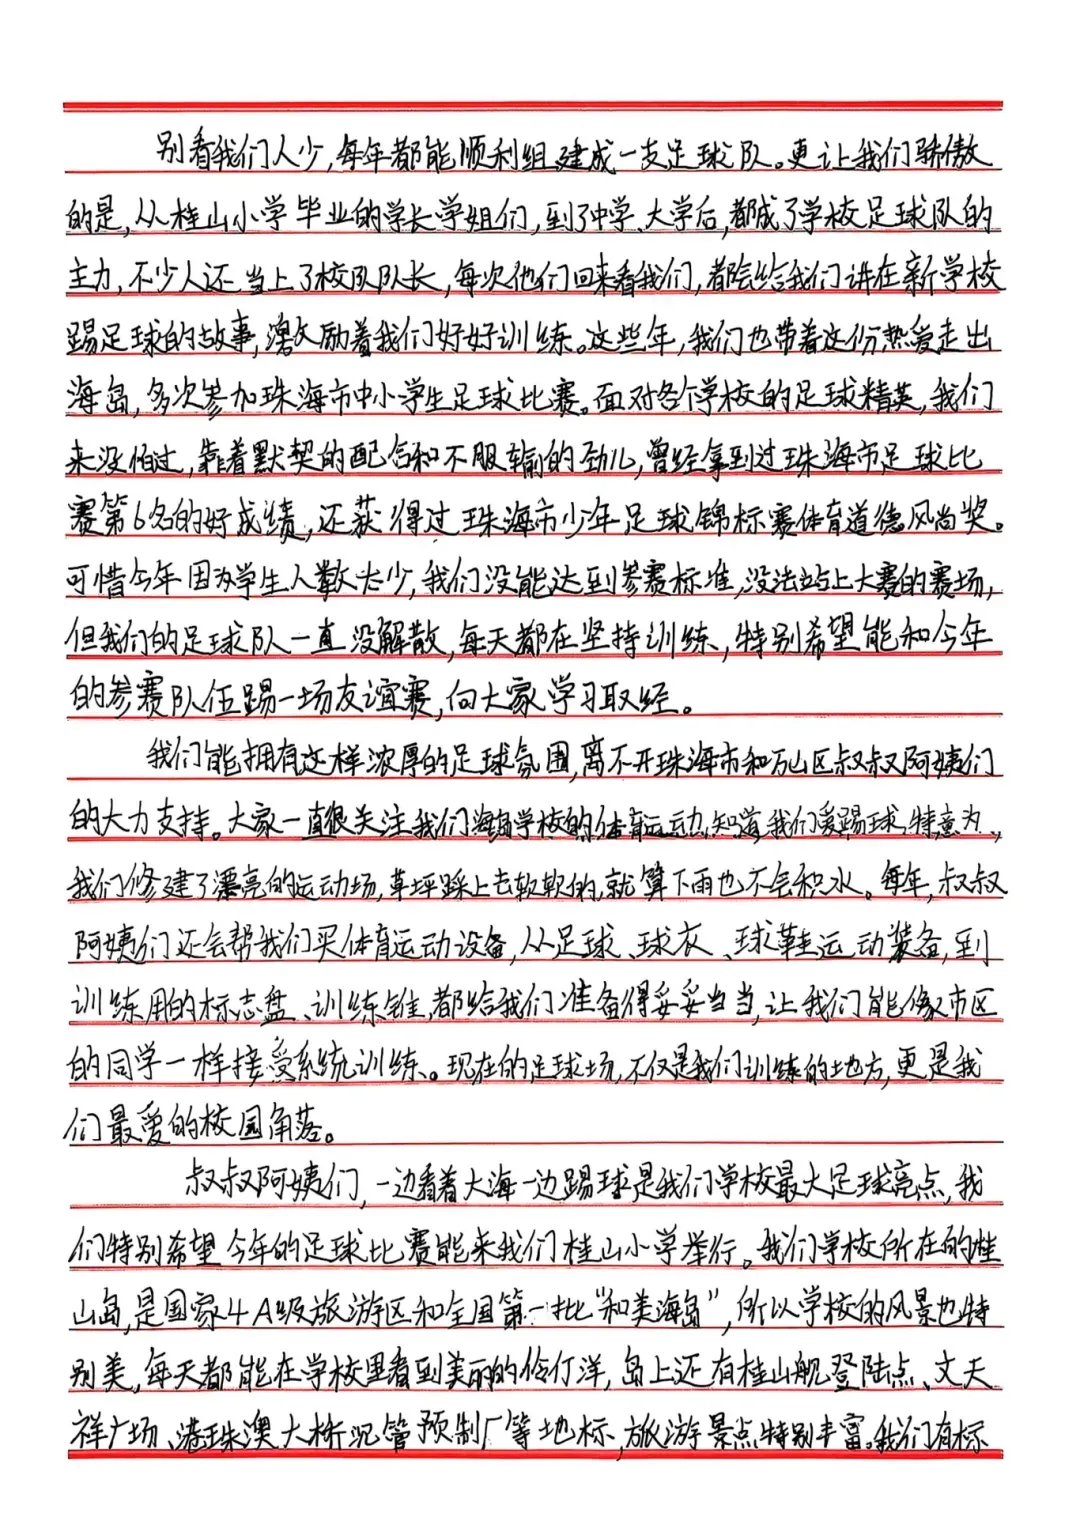 别看我们人少,每年都能顺利组建成一支足球队。更让我们骄傲
的是,从桂山小学毕业的学长学姐们,到了中学、大学后,都成了学校足球队的
主力,不少人还当上了校队队长,每次他们回来看我们,都会给我们讲在新学校
踢足球的故事,激励着我们好好训练。这些年,我们也带着这份热爱走出
海岛,多次参加珠海市中小学生足球比赛。面对各个学校的足球精英,我们
来没怕过,靠着默契的配合和不服输的劲儿,曾经拿到过珠海市足球比
赛第6名的好成绩,还获得过珠海市少年足球锦标赛体育道德风尚奖。
可惜今年因为学生人数太少,我们没能达到参赛标准,没法站上大赛的赛场,
但我们的足球队一直没解散,每天都在坚持训练,特别希望能和今年
的参赛队伍踢一场友谊赛,向大家学习取经。
我们能拥有这样浓厚的足球氛围,离不开珠海市和万山区叔叔阿姨们
的大力支持。大家一直很关注我们海岛学校的体育运动,知道我们爱踢球,特意为
我们修建了漂亮的运动场,草坪踩上去软软的,就算下雨也不会积水。每年,叔叔
阿姨们还会帮我们买体育运动设备,从足球、球衣、球鞋运动装备,到
训练用的标志盘、训练锥,都给我们准备得妥妥当当,让我们能像市区
的同学一样接受系统训练。现在的足球场,不仅是我们训练的地方,更是我
们最爱的校园角落。
叔叔阿姨们,一边看着大海一边踢球是我们学校最大足球亮点,我
们特别希望今年的足球比赛能来我们桂山小学举行。我们学校所在的桂
山岛,是国家4A级旅游区和全国第一批“和美海岛”,所以学校的风景也特
别美,每天都能在学校里看到美丽的伶仃洋,岛上还有桂山舰登陆点、文天
祥广场、港珠澳大桥沉管预制厂等地标,旅游景点特别丰富。我们有标